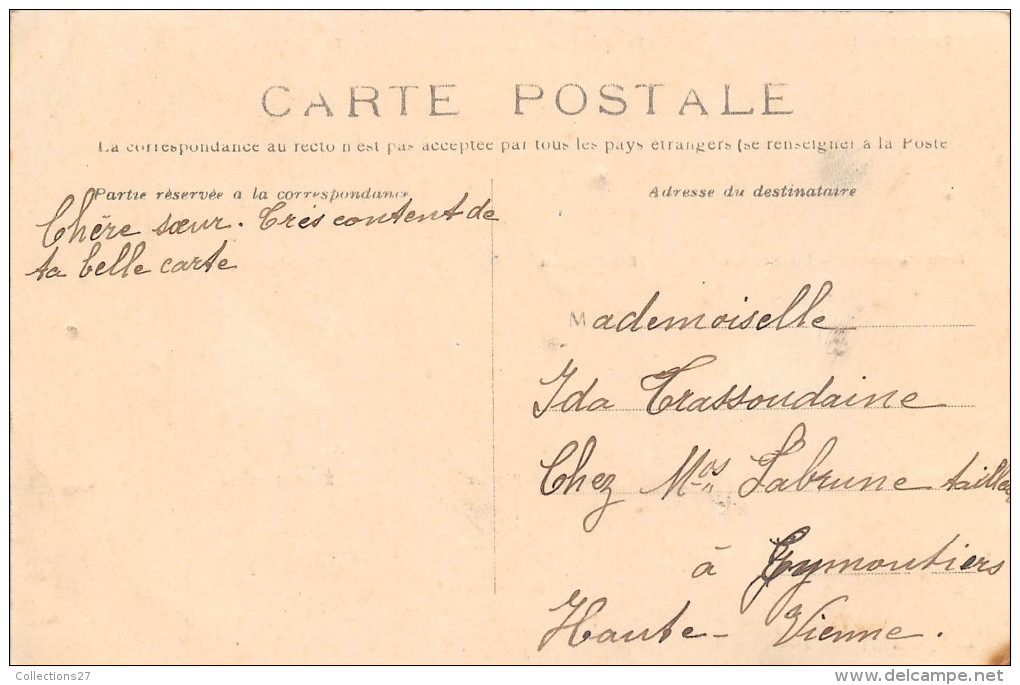 CARTE POSTALE
La correspondance au recto n'est pas acceptée par tous les pays étrangers (se renseigner à la Poste
Partie réservée a la correspondance
Chère sœur. Très content de
ta belle carte
Adresse du destinataire
Mademoiselle
Ida Trassoudaine
Chez Labrune
à Eymoutiers
Haute-Vienne.
Collections27
delcampe.net